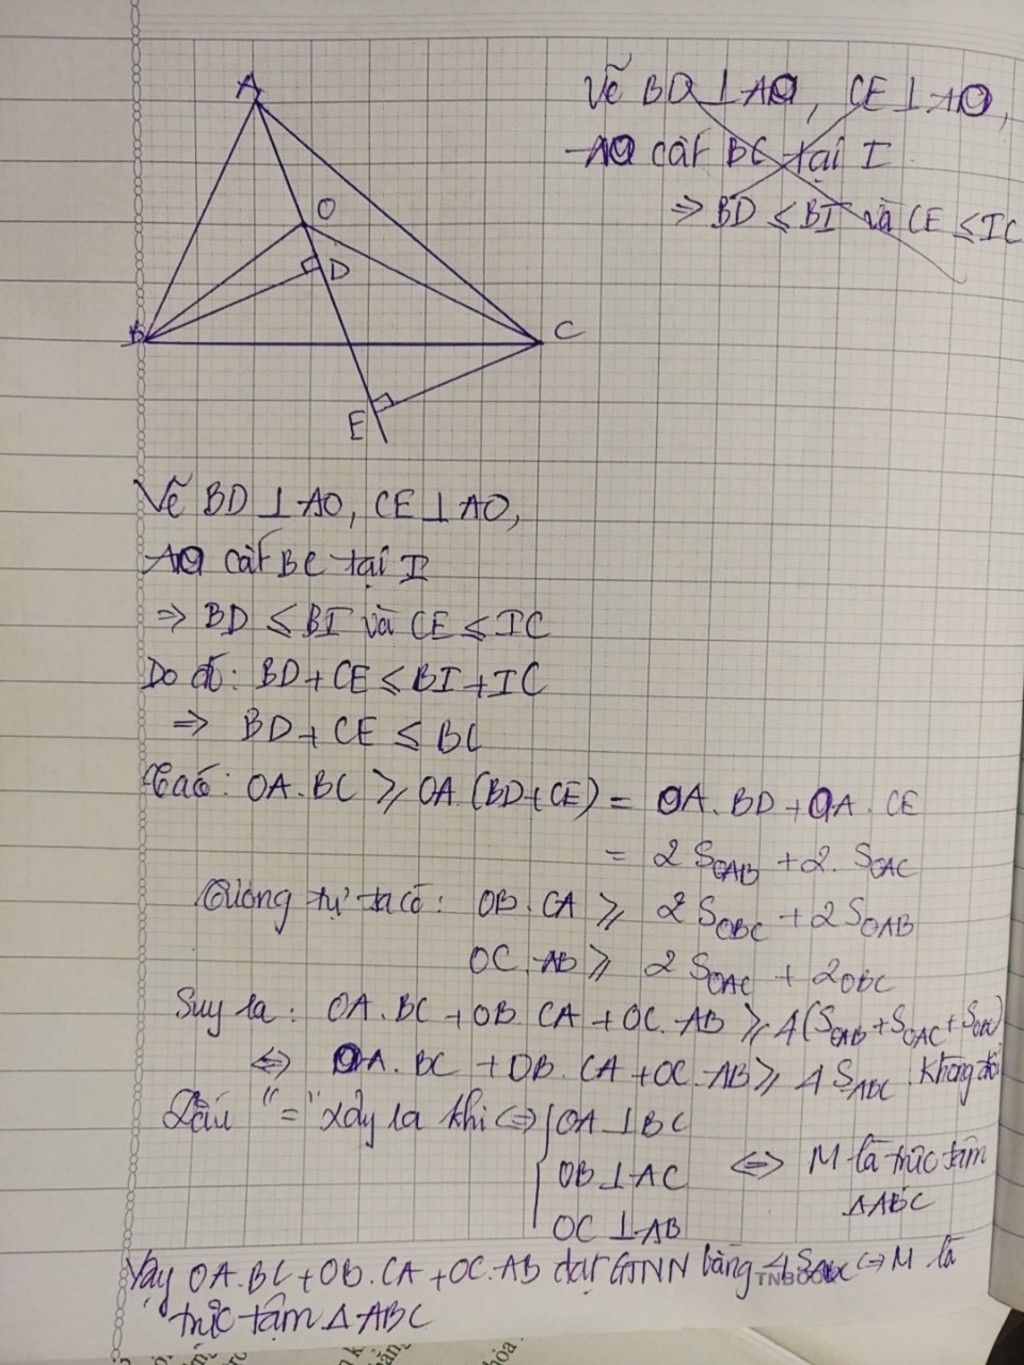 A
O
D
B
C
E
Vẽ BD ⊥ AO, CE ⊥ AO,
AO cắt BC tại I
⇒ BD ≤ BI và CE ≤ IC
Vẽ BD ⊥ AO, CE ⊥ AO,
AO cắt BC tại I
⇒ BD ≤ BI và CE ≤ IC
Do đó: BD + CE ≤ BI + IC
⇒ BD + CE ≤ BC
Ta có: OA.BC ≥ OA (BD + CE) = OA.BD + OA.CE
= 2 S_OAB + 2. S_OAC
Tương tự ta có: OB.CA ≥ 2 S_OBC + 2 S_OAB
OC.AB ≥ 2 S_OAC + 2_OBC
Suy ra: OA.BC + OB.CA + OC.AB ≥ 4(S_OAB + S_OAC + S_OBC)
⇔ OA.BC + OB.CA + OC.AB ≥ 4 S_ABC không đổi
Dấu "=" xảy ra khi ⇔ { OA ⊥ BC
OB ⊥ AC ⇔ M là trực tâm
ΔABC
OC ⊥ AB
Vậy OA.BC + OB.CA + OC.AB đạt GTNN bằng 4 S_ABC ⇔ M là
trực tâm ΔABC